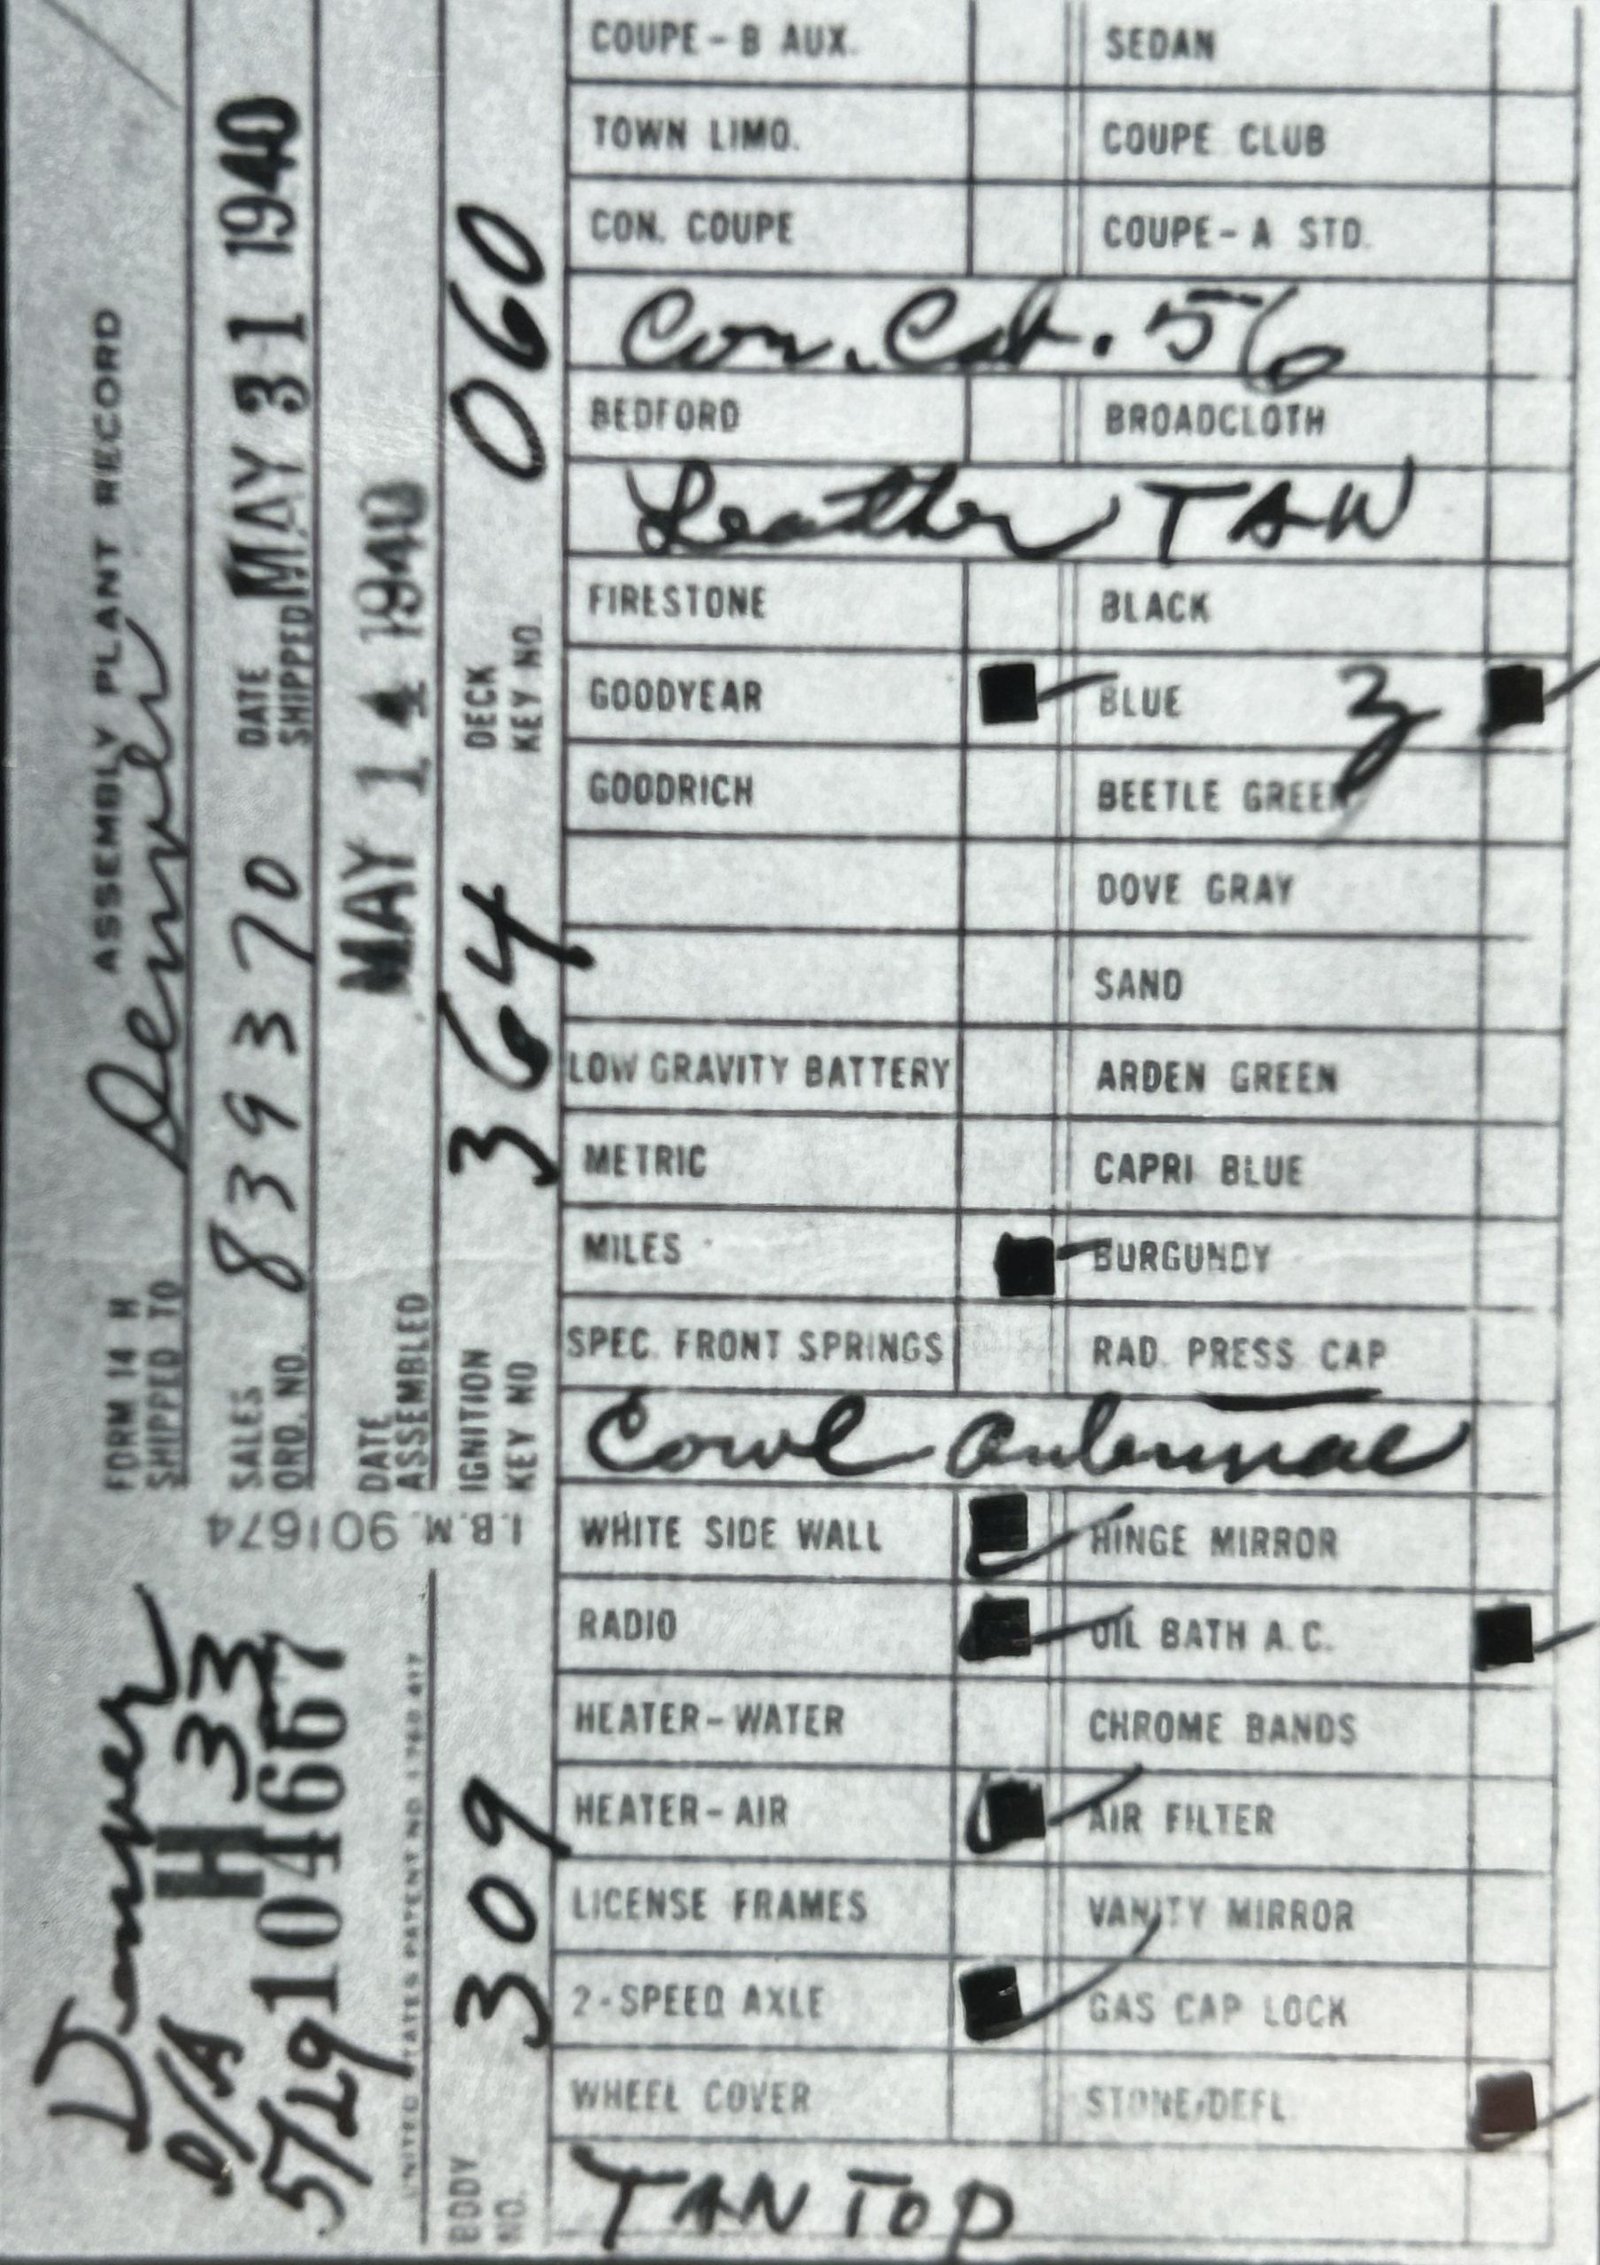 FORM 14 H ASSEMBLY PLANT RECORD
SHIPPED TO Denver
SALES ORD. NO. 839370 DATE SHIPPED MAY 31 1940
DATE ASSEMBLED MAY 14 1940
IGNITION KEY NO 364 DECK KEY NO. 060
I.B.M. 901674
Denver
D/A H 33
5/29 H 104667
UNITED STATES PATENT NO. 1,760,417
BODY NO. 309
COUPE - B AUX. SEDAN
TOWN LIMO. COUPE CLUB
CON. COUPE COUPE - A STD.
Con. Cab. 56
BEDFORD BROADCLOTH
Leather TAN
FIRESTONE BLACK
GOODYEAR BLUE 3
GOODRICH BEETLE GREEN
DOVE GRAY
SAND
LOW GRAVITY BATTERY ARDEN GREEN
METRIC CAPRI BLUE
MILES BURGUNDY
SPEC. FRONT SPRINGS RAD. PRESS CAP
Cowl Antennae
WHITE SIDE WALL HINGE MIRROR
RADIO OIL BATH A.C.
HEATER - WATER CHROME BANDS
HEATER - AIR AIR FILTER
LICENSE FRAMES VANITY MIRROR
2 - SPEED AXLE GAS CAP LOCK
WHEEL COVER STONE DEFL.
TAN TOP